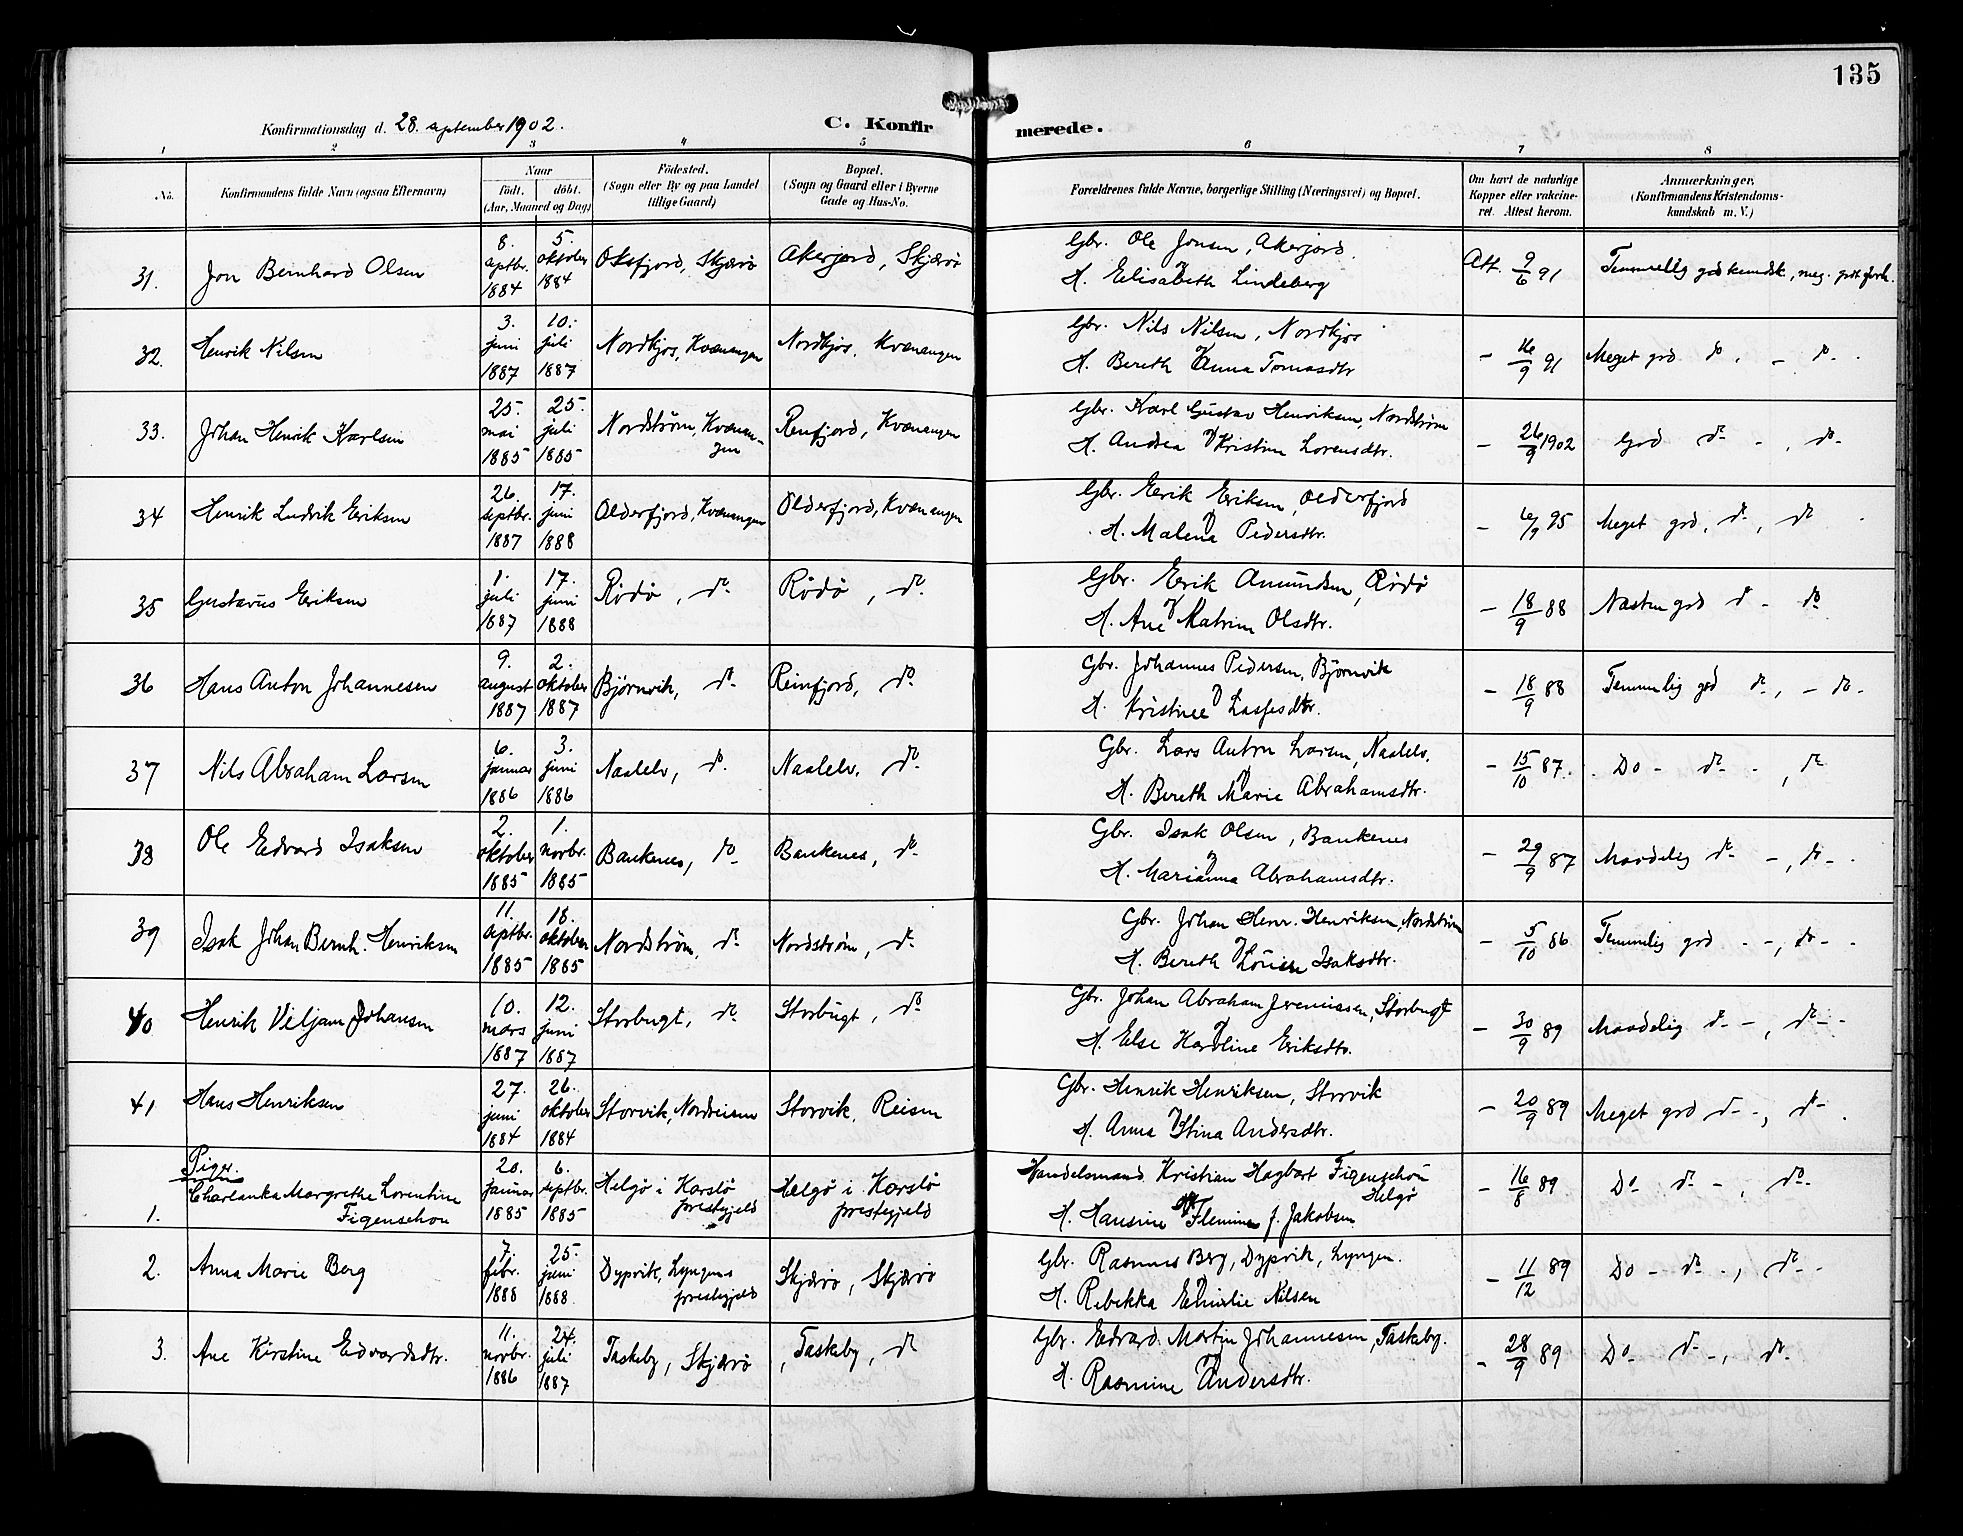 135
Konfirmationsdag d. 28. september 1902.
C. Konfirmerede.
1 2 3 4 5 6 7 8
No.
Konfirmandens fulde Navn (ogsaa Efternavn)
Naar
födt. döbt.
(Aar, Maaned og Dag)
Födested.
(Sogn eller By og paa Landet
tillige Gaard)
Bopæl.
(Sogn og Gaard eller i Byerne
Gade og Hus-No.
Forældrenes fulde Navne, borgerlige Stilling (Næringsvei) og Bopæl.
Om havt de naturlige
Kopper eller vakcine-
ret. Attest herom.
Anmærkninger.
(Konfirmandens Kristendoms-
kundskab m. V.)
31. Jon Bernhard Olsen
8. septbr. 1884
5. oktober 1884
Oksfjord, Skjærø
Akerjord, Skjærø
Gbr. Ole Jonsen, Akerjord.
H. Elisabeth Lindeberg
Att. 9/6 91
Temmelig god kundsk., meg. godt forh.
32. Henrik Nilsen
3. juni 1887
10. juli 1887
Nordkjos, Kvænangen
Nordkjos, Kvænangen
Gbr. Nils Nilsen, Nordkjos
H. Bereth Anna Tomasdtr
- 16/9 91
Meget god do, - do -
33. Johan Henrik Karlsen
25. mai 1885
25. juli 1885
Nordstrøm, Kvænan-
gen
Renfjord, Kvænangen
Gbr. Karl Gustav Henriksen, Nordstrøm
H. Andrea Kristine Lorensdtr.
- 26/9 1902
God do - , do -
34 Henrik Ludvik Eriksen
26. septbr. 1887
17. juni 1888
Olderfjord, Kvænangen
Olderfjord, Kvænangen
Gbr. Eerik Eriksen, Olderfjord
H. Malena Pedersdtr.
- 6/9 95
Meget god, do, do
35 Gustavus Eriksen
1. juli 1887
17. juni 1888
Rødø, do
Rødø, do
Gbr. Eerik Amundsen, Rødø
H. Ane Katrine Olsdtr.
- 18/9 88
Næsten god do - do
36 Hans Anton Johannesen
9. august 1887
2. oktober 1887
Bjørnvik, do
Reinfjord, do
Gbr. Johannes Pedersen, Bjørnvik
H. Kristine
- 18/9 88
Temmelig god do, - do -
37 Nils Abraham Larsen
6. januar 1886
3. juni 1886
Naalelv, do
Naalelv, do
Gbr. Lars Anton Larsen, Naalelv.
H. Bereth Marie Abrahamsdtr.
- 15/10 87.
Do - do - , do
38 Ole Edvard Isaksen
2. oktober 1885
1. novbr. 1885
Bankenes, do
Bankenes, do
Gbr. Isak Olsen, Bankenes
H. Marianna Abrahamsdtr.
- 29/9 87
Maadelig do - , do -
39 Isak Johan Bernh. Henriksen
11. septbr. 1885
18. oktober 1885
Nordstrøm, do
Nordstrøm, do
Gbr. Johan Henr. Henriksen, Nordstrøm
H. Bereth Lovise Isaksdtr.
- 5/10 86
Temmelig god - - , do -
40 Henrik Viljam Johansen
10. mars 1887
12. juni 1887
Storbugt, do
Storbugt, do
Gbr. Johan Abraham Jeremiassen, Storbugt
H. Else Karoline Eriksdtr.
- 30/9 89
Maadelig do - , do -
41. Hans Henriksen
27. juni 1884
26. oktober 1884
Storvik, Nordreisen
Storvik, Reisen
Gbr. Henrik Henriksen, Storvik
H. Anna Stina Andersdtr.
- 20/9 89
Meget god do - , do -
Piger.
1. Charlanka Margrethe Lorentine
Figenschou
20. januar 1885
6. septbr. 1885
Helgø i Karslø
prestegjeld
Helgø i Karslø
prestegjeld
Handelsmand Kristian Hagbart Figenschou
Helgø
H. Hansine Flemine f. Jakobsen
- 16/8 89
Do - do - , do -
2. Anna Marie Berg
7. febr. 1888
25. juni 1888
Dypvik, Lyngens
prestegjeld
Skjærø, Skjærø
Gbr. Rasmus Berg, Dypvik, Lyngen.
H. Rebekka Emilie Nilsen
- 11/12 89
Do - do - , do -
3. Ane Kirstine Edvardsdtr.
11. novbr. 1886
24. juli 1887
Taskeby, Skjærø
Taskeby, do
Gbr. Edvard Martin Johannesen, Taskeby.
H. Rasmine Andersdtr.
- 28/9 89
Do - do - , do -